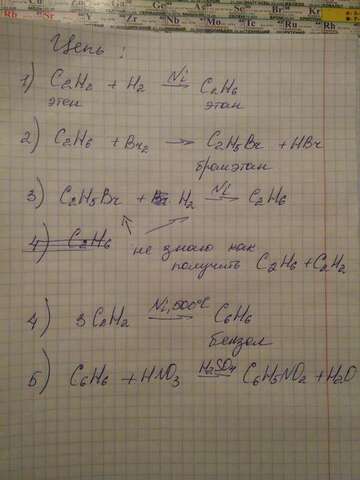 Цепь:
1) C2H2 + H2 Ni→ C2H6
этен этан
2) C2H6 + Br2 → C2H5Br + HBr
бромэтан
3) C2H5Br + H2 Ni→ C2H6
4) C2H6 не знаю как
получить C2H6 + C2H2
4) 3C2H2 Ni,500°C→ C6H6
бензол
5) C6H6 + HNO3 H2SO4→ C6H5NO2 + H2O